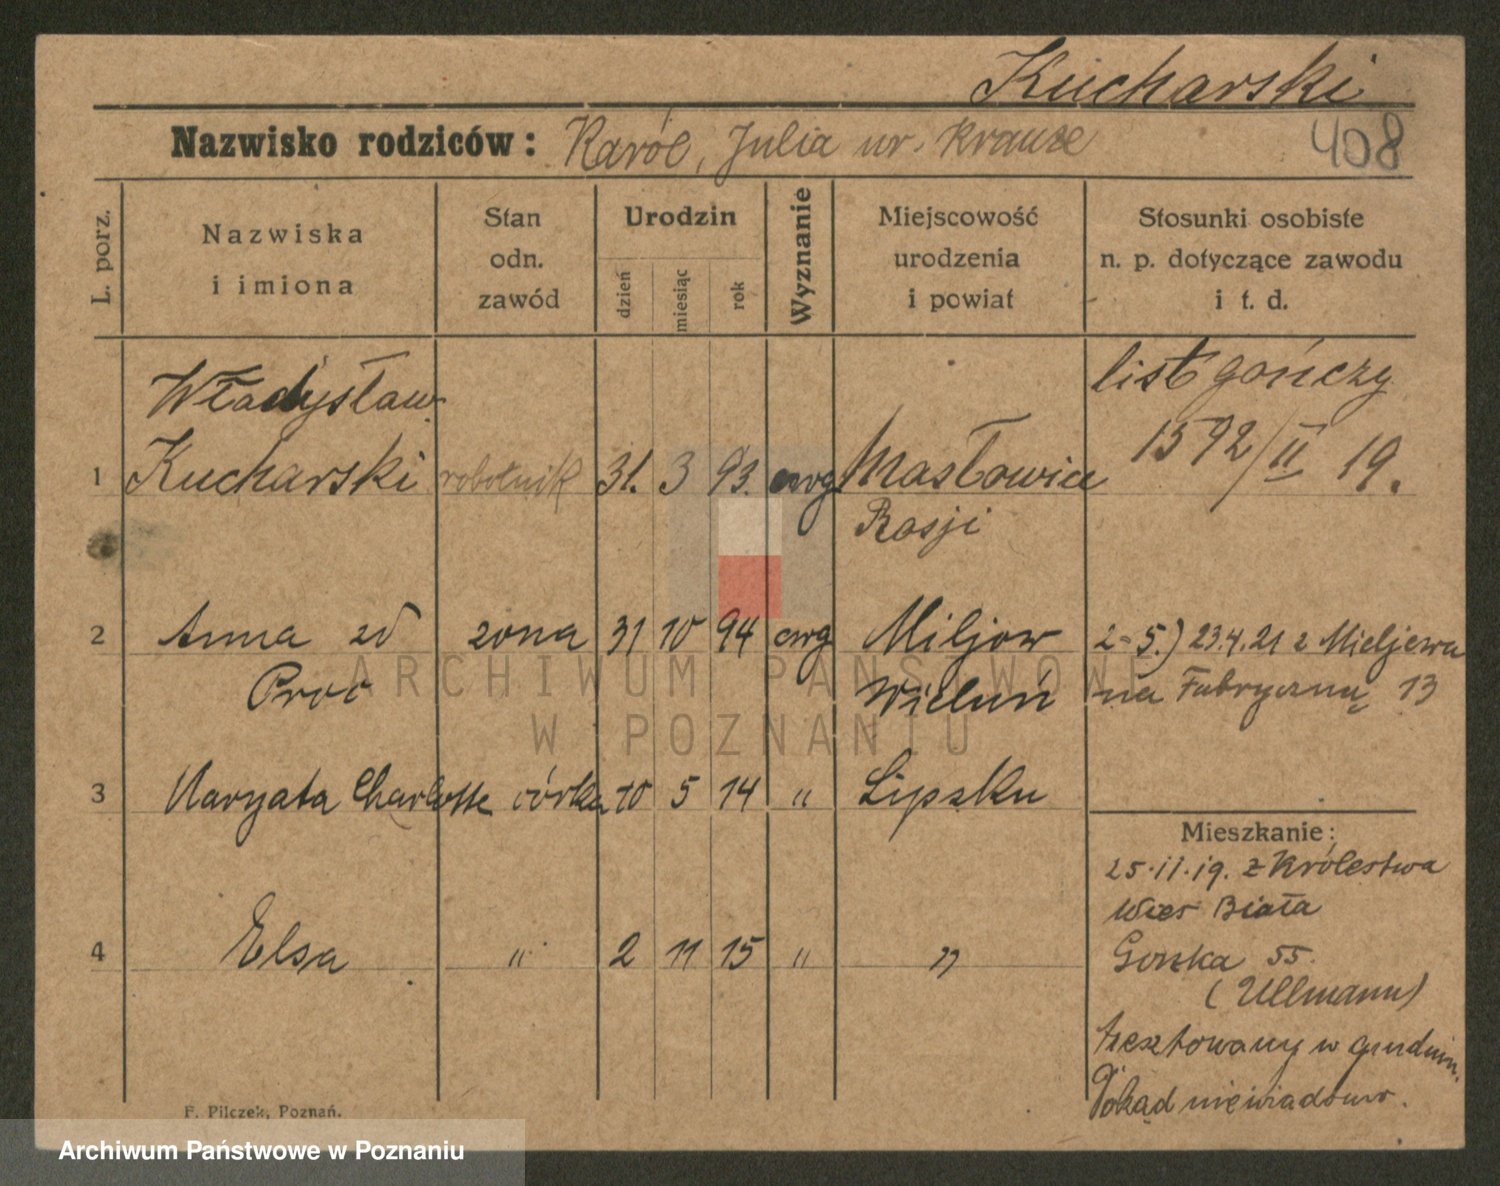 Kucharski
Nazwisko rodziców: Karól, Julia ur. Krauze
408
L. porz.
Nazwiska
i imiona
Stan
odn.
zawód
Urodzin
dzień
miesiąc
rok
Wyznanie
Miejscowość
urodzenia
i powiat
Stosunki osobiste
n. p. dotyczące zawodu
i t. d.
list gończy
1592/II 19.
Władysław
1 Kucharski robotnik 31. 3 93. ewg Masłowice
Rosji
2 Anna zd żona 31 10 94 ewg Miljow
Proc Wieluń
2-5.) 23.4.21 z Mieljewa
na Fabryczną 13
3 Margata Charlotte córka 10 5 14 " Lipsku
4 Elsa " 2 11 15 " "
Mieszkanie:
25.11.19. z Królestwa
Wieś Biała
Gorska 55.
(Ullmann)
w grudniu.
Dokąd niewiadomo.
F. Pilczek, Poznań.
ARCHIWUM PAŃSTWOWE
W POZNANIU
Archiwum Państwowe w Poznaniu